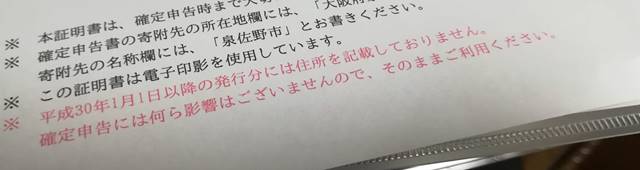 ※ 本証明書は、確定申告時まで大切
※ 確定申告書の寄附先の所在地欄には、「大阪府
※ 寄附先の名称欄には、「泉佐野市」とお書きください。
※ この証明書は電子印影を使用しています。
※ 平成30年1月1日以降の発行分には住所を記載しておりません。
確定申告には何ら影響はございませんので、そのままご利用ください。